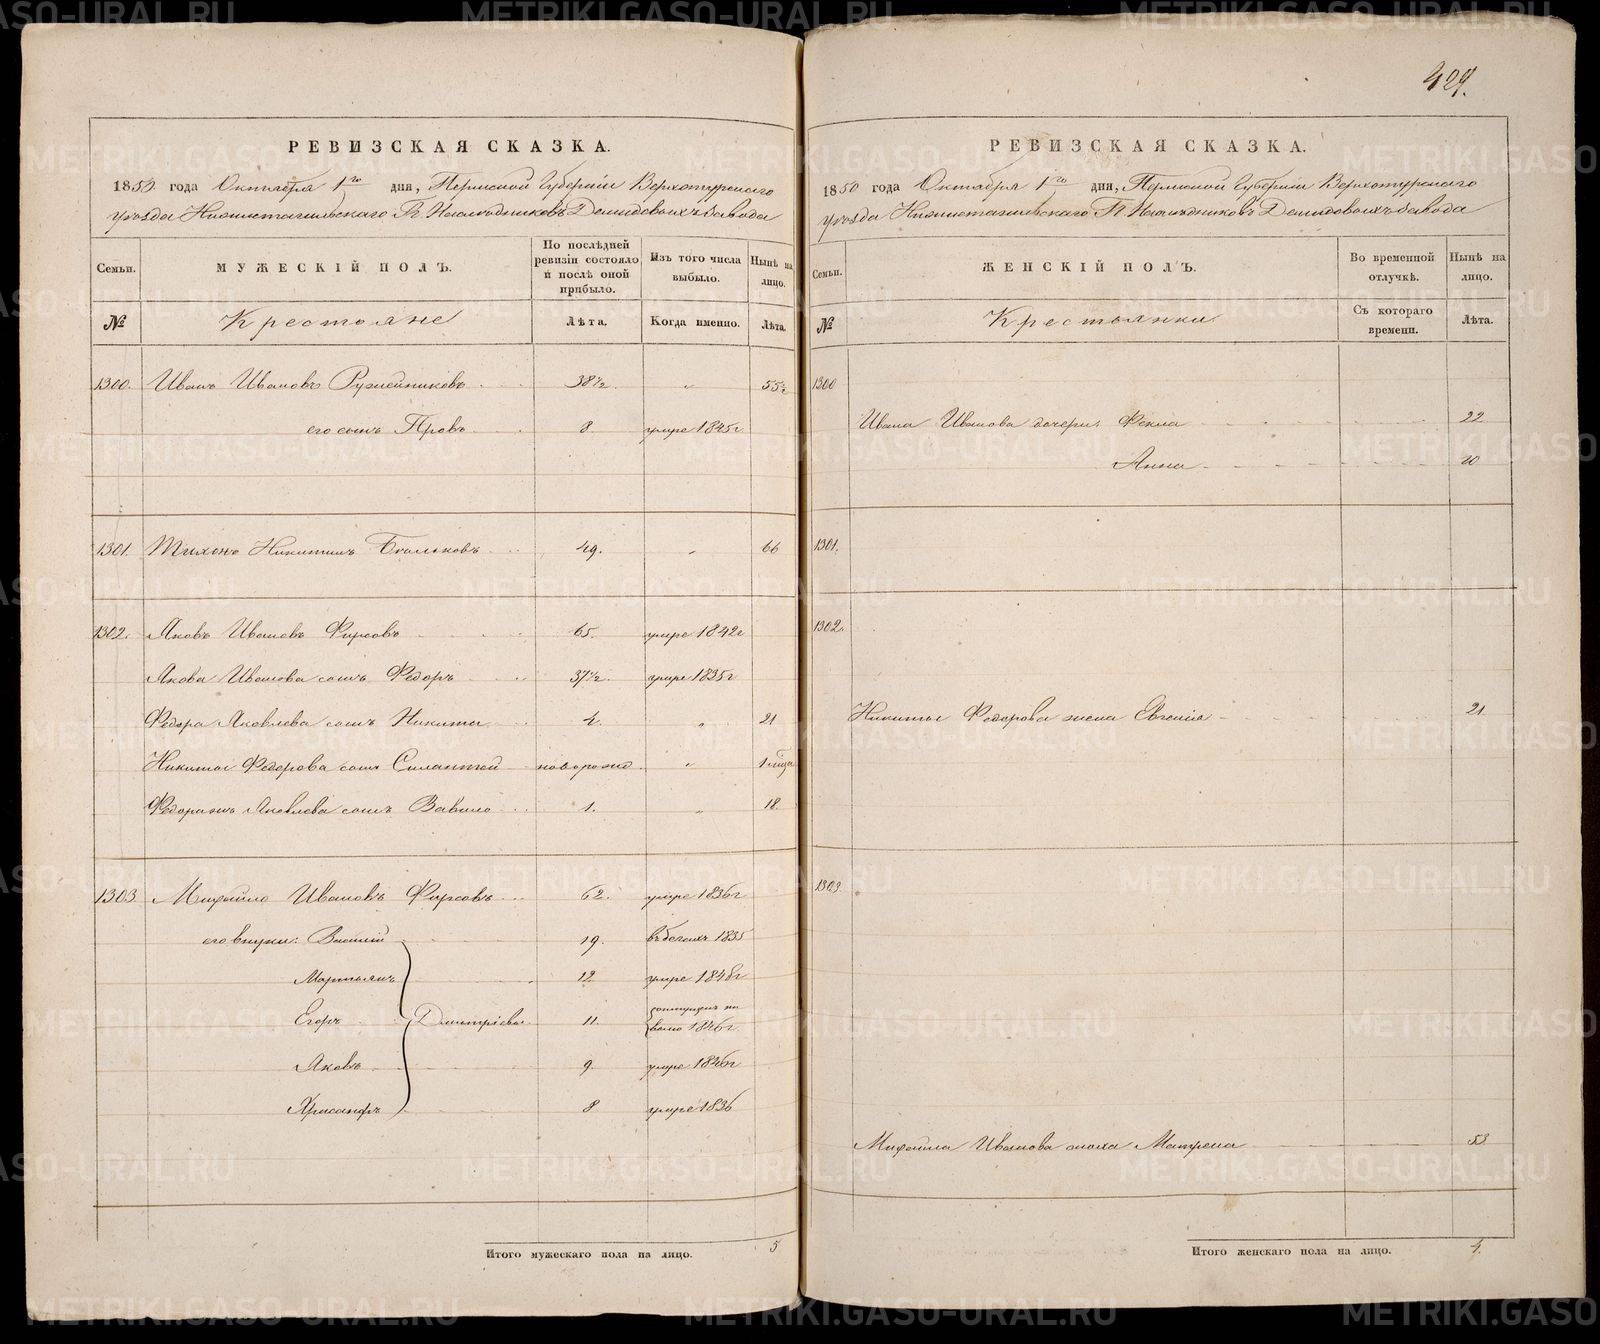 429.
РЕВИЗСКАЯ СКАЗКА.
1850 года Октября 1го дня, Пермской Губернии Верхотурскаго
уезда Нижнетагильскаго Гг. Наследниковъ Демидовыхъ завода
Семьи.
МУЖЕСКІЙ ПОЛЪ.
По послѣдней ревизіи состояло и послѣ оной прибыло.
Изъ того числа выбыло.
Нынѣ на лицо.
№
Крестьяне
Лѣта.
Когда именно.
Лѣта.
1300. Иванъ Ивановъ Ружейниковъ 38½ " 55½
его сынъ Провъ 8 умре 1845г
1301. Тихонъ Никитинъ 49. " 66
1302. Яковъ Ивановъ Фирсовъ 65. умре 1842г
Якова Иванова сынъ Федоръ 37½. умре 1835г
Федора Яковлева сынъ Никита 4. " 21
Никиты Федорова сынъ Силантий новорожд. " 1 мца
Федора жъ Яковлева сынъ Вавило 1. " 18
1303 Михайло Ивановъ Фирсовъ 62. умре 1836г
его внуки: Василий 19. въ бегахъ 1835
Мартынъ 12 умре 1848г
Егоръ Дмитриевы 11. 1846г.
Яковъ 9. умре 1846г
Хрисанфъ 8 умре 1836
Итого мужескаго пола на лицо. 5
РЕВИЗСКАЯ СКАЗКА.
1850 года Октября 1го дня, Пермской Губернии Верхотурскаго
уезда Нижнетагильскаго Гг. Наследниковъ Демидовыхъ завода
Семьи.
ЖЕНСКІЙ ПОЛЪ.
Во временной отлучкѣ.
Нынѣ на лицо.
№
Крестьянки
Съ котораго времени.
Лѣта.
1300
Ивана Иванова дочери: Фекла 22
Анна 20
1301.
1302.
Никиты Федорова жена Евгения 21
1303
Михайла Иванова сноха Матрена 53
Итого женскаго пола на лицо. 4.
METRIKI.GASO-URAL.RU